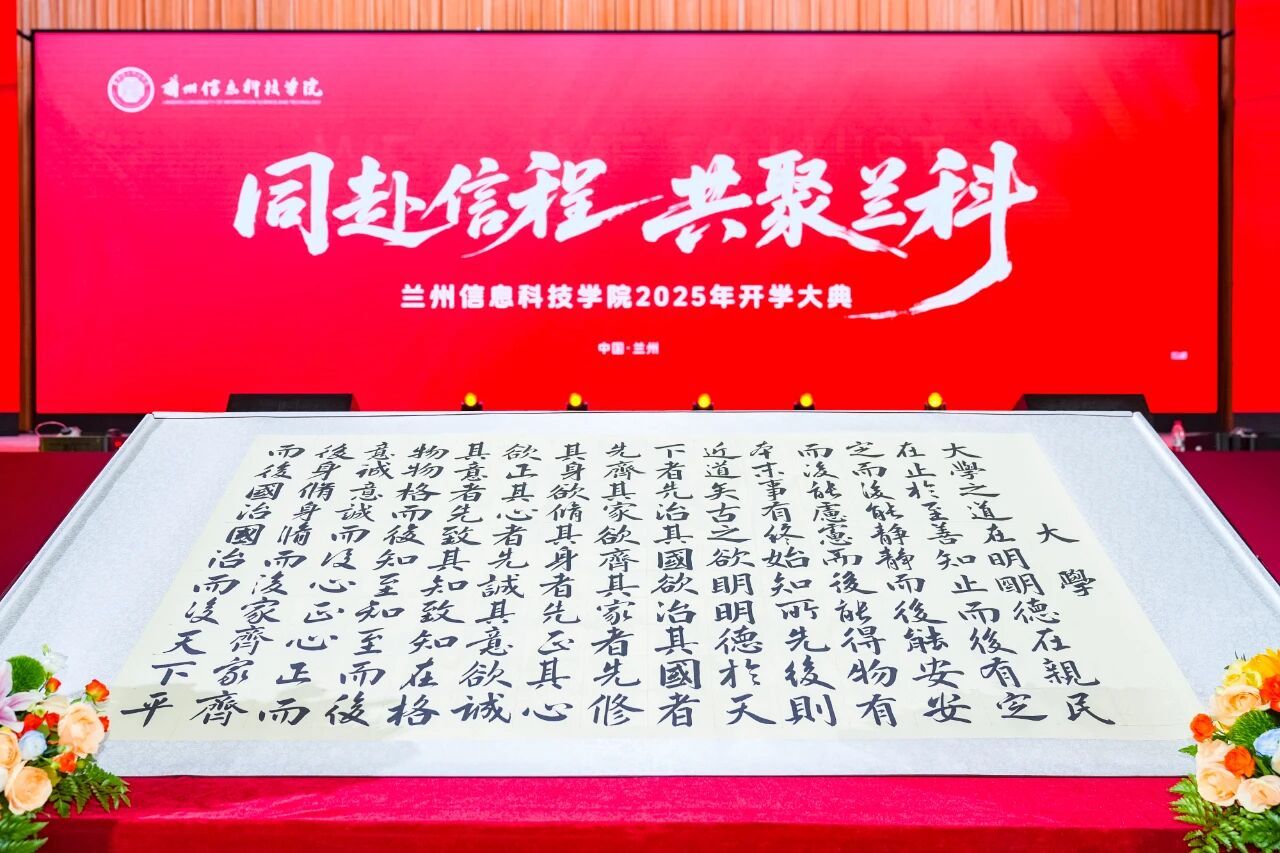 兰州信息科技学院
同赴信程 共聚兰科
兰州信息科技学院2025年开学大典
中国·兰州
大學
大學之道在明明德在親民
在止於至善知止而後有定
定而後能静静而後能安安
而後能慮慮而後能得物有
本末事有終始知所先後則
近道矣古之欲明明德於天
下者先治其國欲治其國者
先齊其家欲齊其家者先修
其身欲脩其身者先正其心
欲正其心者先誠其意欲誠
其意者先致其知致知在格
物物格而後知至知至而後
意誠意誠而後心正心正而
後身脩身脩而後家齊家齊
而後國治國治而後天下平